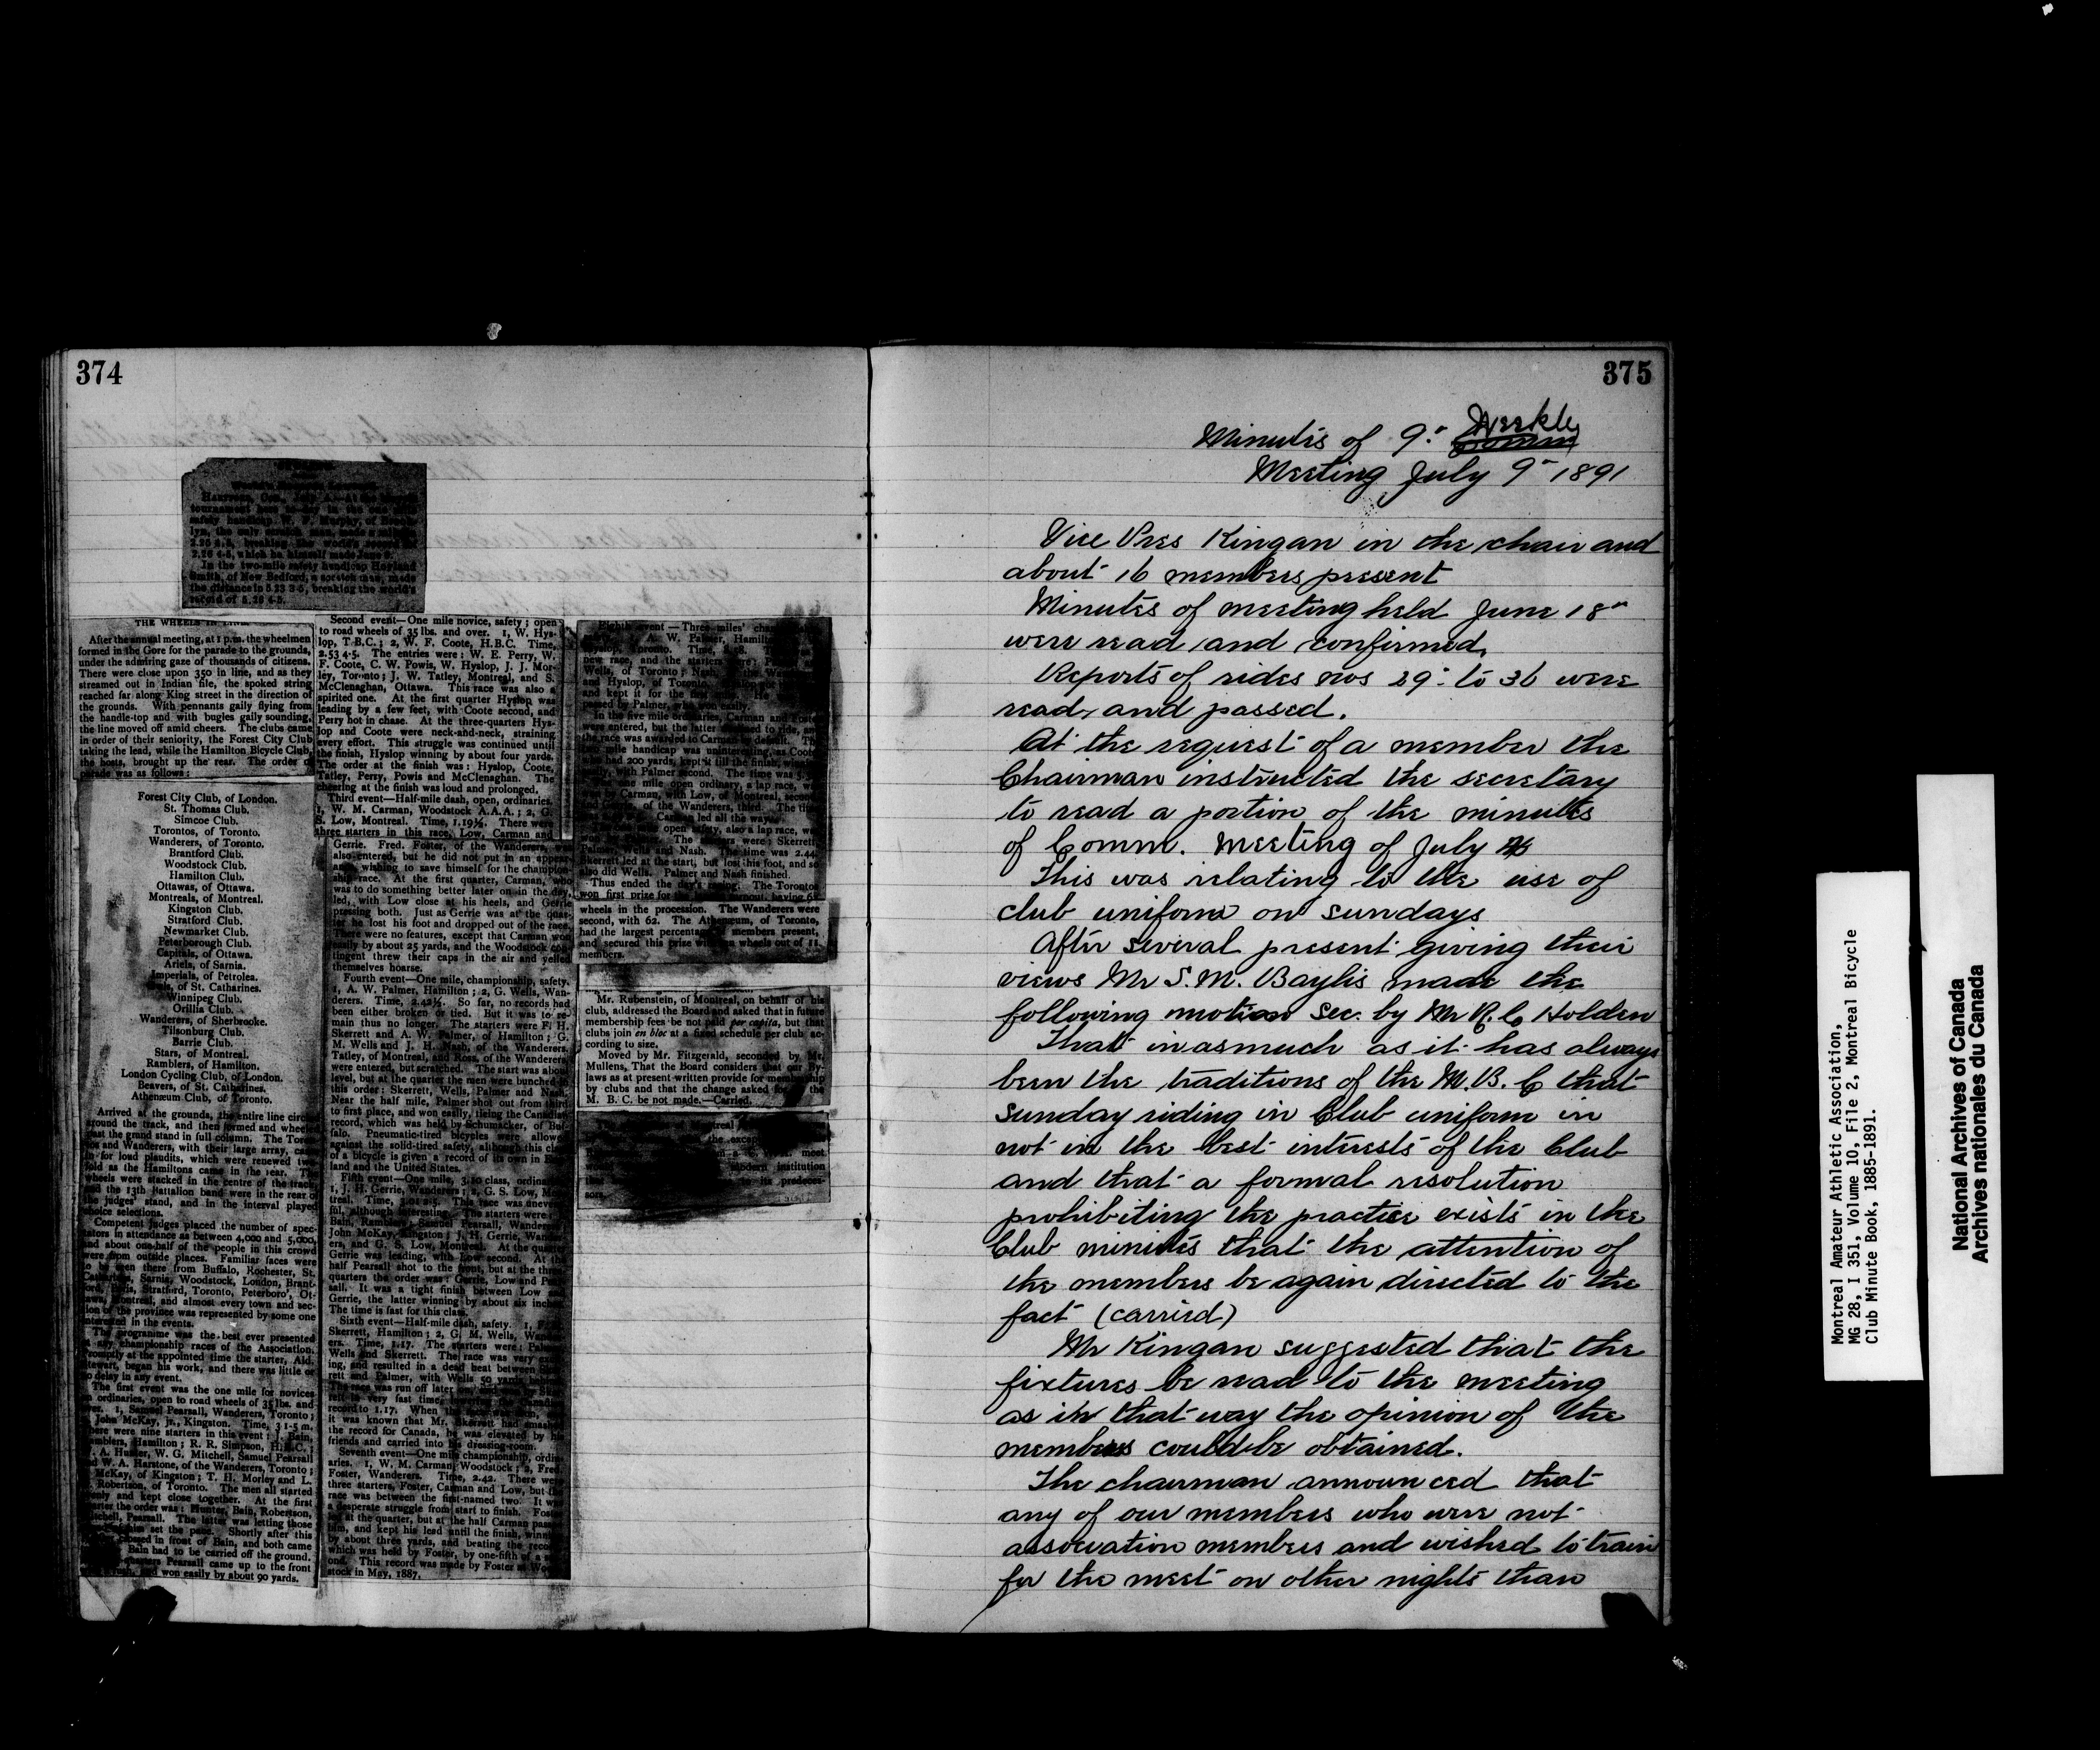 374
HARTFORD, Con
tournament
safety handicap W. F. Murphy, of Brook-
lyn, the only scratch man, made a mile in
2.26 4-5, which he himself made June
In the two-mile safety handicap Hoyland
Smith, of New Bedford, a scratch man, made
the distance in 5.23 3-5, breaking the world's
record of 5.26 4-5.
THE WHEELS IN LINE.
After the annual meeting, at 1 p.m. the wheelmen
formed in the Gore for the parade to the grounds,
under the admiring gaze of thousands of citizens.
There were close upon 350 in line, and as they
streamed out in Indian file, the spoked string
reached far along King street in the direction of
the grounds. With pennants gaily flying from
the handle-top and with bugles gaily sounding,
the line moved off amid cheers. The clubs came
in order of their seniority, the Forest City Club
taking the lead, while the Hamilton Bicycle Club,
the hosts, brought up the rear. The order of
parade was as follows:
Forest City Club, of London.
St. Thomas Club.
Simcoe Club.
Torontos, of Toronto.
Wanderers, of Toronto.
Brantford Club.
Woodstock Club.
Hamilton Club.
Ottawas, of Ottawa.
Montreals, of Montreal.
Kingston Club.
Stratford Club.
Newmarket Club.
Peterborough Club.
Capitals, of Ottawa.
Ariels, of Sarnia.
Imperials, of Petrolea.
of St. Catharines.
Winnipeg Club.
Orillia Club.
Wanderers, of Sherbrooke.
Tilsonburg Club.
Barrie Club.
Stars, of Montreal.
Ramblers, of Hamilton.
London Cycling Club, of London.
Beavers, of St. Catharines.
Athenæum Club, of Toronto.
Arrived at the grounds, the entire line circled
around the track, and then formed and wheeled
past the grand stand in full column. The Toron-
tos and Wanderers, with their large array, came
in for loud plaudits, which were renewed two
fold as the Hamiltons came in the rear. The
wheels were stacked in the centre of the track,
and the 13th Battalion band were in the rear of
the judges' stand, and in the interval played
choice selections.
Competent judges placed the number of spec-
tators in attendance as between 4,000 and 5,000,
and about one-half of the people in this crowd
were from outside places. Familiar faces were
to be seen there from Buffalo, Rochester, St.
Catharines, Sarnia, Woodstock, London, Brant-
ford, Paris, Stratford, Toronto, Peterboro', Ot-
tawa, Montreal, and almost every town and sec-
tion of the province was represented by some one
interested in the events.
The programme was the best ever presented
at any championship races of the Association.
Promptly at the appointed time the starter, Ald.
Stewart, began his work, and there was little or
no delay in any event.
The first event was the one mile for novices
on ordinaries, open to road wheels of 35 lbs. and
over. 1, Samuel Pearsall, Wanderers, Toronto;
John McKay, jr., Kingston. Time, 3 1-5 m.
There were nine starters in this event: J. Bain,
Ramblers, Hamilton; R. R. Simpson, H.B.C.;
A. Hunter, W. G. Mitchell, Samuel Pearsall
and W. A. Harstone, of the Wanderers, Toronto;
McKay, of Kingston; T. H. Morley and L.
Robertson, of Toronto. The men all started
and kept close together. At the first
quarter the order was: Hunter, Bain, Robertson,
Mitchell, Pearsall. The latter was letting those
set the pace. Shortly after this
in front of Bain, and both came
Bain had to be carried off the ground.
Pearsall came up to the front
and won easily by about 90 yards.
Second event—One mile novice, safety; open
to road wheels of 35 lbs. and over. 1, W. Hys-
lop, T.B.C.; 2, W. F. Coote, H.B.C. Time,
2.53 4-5. The entries were: W. E. Perry, W.
F. Coote, C. W. Powis, W. Hyslop, J. J. Mor-
ley, Toronto; J. W. Tatley, Montreal, and S.
McClenaghan, Ottawa. This race was also a
spirited one. At the first quarter Hyslop was
leading by a few feet, with Coote second, and
Perry hot in chase. At the three-quarters Hys-
lop and Coote were neck-and-neck, straining
every effort. This struggle was continued until
the finish, Hyslop winning by about four yards.
The order at the finish was: Hyslop, Coote,
Tatley, Persy, Powis and McClenaghan. The
cheering at the finish was loud and prolonged.
Third event—Half-mile dash, open, ordinaries.
1, W. M. Carman, Woodstock A.A.A.; 2, G.
S. Low, Montreal. Time, 1.19½. There were
three starters in this race, Low, Carman and
Gerrie. Fred. Foster, of the Wanderers, was
also entered, but he did not put in an appear-
ance, wishing to save himself for the champion-
ship race. At the first quarter, Carman, who
was to do something better later on in the day,
led, with Low close at his heels, and Gerrie
pressing both. Just as Gerrie was at the quar-
ter he lost his foot and dropped out of the race.
There were no features, except that Carman won
easily by about 25 yards, and the Woodstock con-
tingent threw their caps in the air and yelled
themselves hoarse.
Fourth event—One mile, championship, safety.
1, A. W. Palmer, Hamilton; 2, G. Wells, Wan-
derers. Time, 2.42½. So far, no records had
been either broken or tied. But it was to re-
main thus no longer. The starters were F. H.
Skerrett and A. W. Palmer, of Hamilton; G.
M. Wells and J. H. Nash, of the Wanderers.
Tatley, of Montreal, and Ross, of the Wanderers,
were entered, but scratched. The start was about
level, but at the quarter the men were bunched in
this order: Skerrett, Wells, Palmer and Nash.
Near the half mile, Palmer shot out from third
to first place, and won easily, tieing the Canadian
record, which was held by Schumacker, of Buf-
falo. Pneumatic-tired bicycles were allowed
against the solid-tired safety, although this class
of a bicycle is given a record of its own in Eng-
land and the United States.
Fifth event—One mile, 3.20 class, ordinaries.
1, J. H. Gerrie, Wanderers; 2, G. S. Low, Mon-
treal. Time, 3.01 2-5. This race was unevent-
ful, although interesting. The starters were:
Bain, Ramblers; Samuel Pearsall, Wanderers;
John McKay, Kingston; J. H. Gerrie, Wander-
ers, and G. S. Low, Montreal. At the quarter
Gerrie was leading, with Low second. At the
half Pearsall shot to the front, but at the three-
quarters the order was: Gerrie, Low and Pear-
sall. It was a tight finish between Low and
Gerrie, the latter winning by about six inches.
The time is fast for this class.
Sixth event—Half-mile dash, safety. 1, F. H.
Skerrett, Hamilton; 2, G. M. Wells, Wander-
ers. Time, 1.17. The starters were: Palmer,
Wells and Skerrett. The race was very excit-
ing, and resulted in a dead heat between Sker-
rett and Palmer, with Wells 50 yards
The race was run off later
very fast time,
record to 1.17. When
it was known that Mr. Skerrett had smashed
the record for Canada, he was elevated by his
friends and carried into his dressing-room.
Seventh event—One mile championship, ordin-
aries. 1, W. M. Carman, Woodstock; 2, Fred.
Foster, Wanderers. Time, 2.42. There were
three starters, Foster, Carman and Low, but the
race was between the first-named two. It was
a desperate struggle from start to finish. Foster
led at the quarter, but at the half Carman passed
him, and kept his lead until the finish, winning
by about three yards, and beating the record,
which was held by Foster, by one-fifth of a sec-
ond. This record was made by Foster at Wood-
stock in May, 1887.
Eighth event—Three miles'
A. W. Palmer, Hamilton;
Hyslop, Toronto. Time, 8.58.
new race, and the starters were:
Wells, of Toronto; Nash,
and Hyslop, of Toronto.
and kept it for the first
passed by Palmer, who won easily.
In the five mile ordinaries, Carman and Foster
were entered, but the latter declined to ride, and
the race was awarded to Carman by default. The
two mile handicap was uninteresting, as Coote,
who had 200 yards, kept it till the finish,
with Palmer second. The time was
one mile open ordinary, a lap race, was
by Carman, with Low, of Montreal, second,
of the Wanderers, third. The time
Carman led all the way.
open safety, also a lap race, was
The starters were: Skerrett,
Palmer, Wells and Nash. The time was 2.44.
Skerrett led at the start, but lost his foot, and so
also did Wells. Palmer and Nash finished.
Thus ended the day's racing. The Torontos
won first prize for the turnout, having
wheels in the procession. The Wanderers were
second, with 62. The Athenæum, of Toronto,
had the largest percentage of members present,
and secured this prize with wheels out of 11
members.
Mr. Rubenstein, of Montreal, on behalf of his
club, addressed the Board and asked that in future
membership fees be not paid per capita, but that
clubs join en bloc at a fixed schedule per club ac-
cording to size.
Moved by Mr. Fitzgerald, seconded by Mr.
Mullens, That the Board considers that our By-
laws as at present written provide for membership
by clubs and that the change asked for by the
M. B. C. be not made.—Carried.
the
most
modern institution
to its predeces-
sors.
375
Minutes of 9" Weekly
Meeting July 9" 1891
Vice Pres Kingan in the chair and
about 16 members present
Minutes of meeting held June 18"
were read and confirmed.
Reports of rides nos 29" to 36 were
read and passed.
At the request of a member the
Chairman instructed the secretary
to read a portion of the minutes
of Comm. meeting of July
This was relating to the use of
club uniform on sundays
After several present giving their
views Mr S. M. Baylis made the
following motion sec. by Mr R. C Holden
That inasmuch as it has always
been the traditions of the M. B. C that
sunday riding in Club uniform in
not in the best interests of the Club
and that a formal resolution
prohibiting the practice exists in the
Club minutes that the attention of
the members be again directed to the
fact (carried)
Mr Kingan suggested that the
fixtures be read to the meeting
as in that way the opinion of the
members could be obtained.
The chairman announced that
any of our members who were not
association members and wished to train
for the meet on other nights than
Montreal Amateur Athletic Association,
MG 28, I 351, Volume 10, File 2, Montreal Bicycle
Club Minute Book, 1885-1891.
National Archives of Canada
Archives nationales du Canada